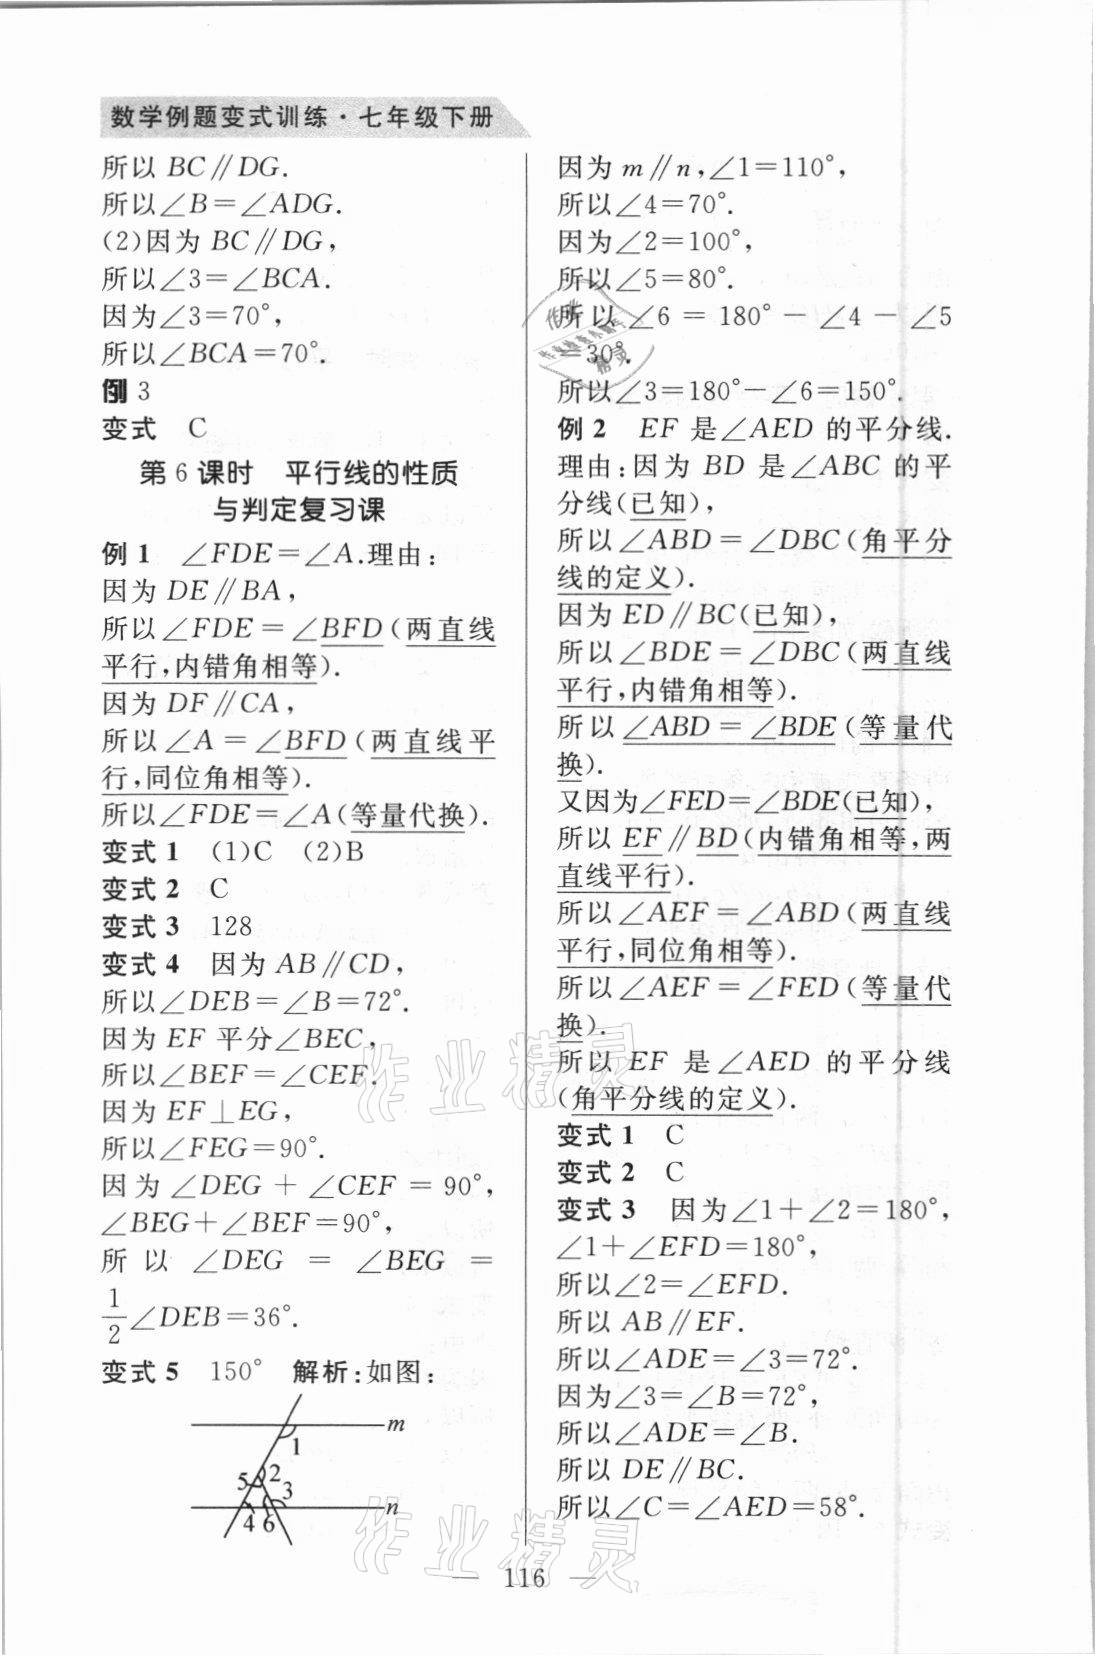 数学例题变式训练·七年级下册
所以 BC∥DG.
所以∠B=∠ADG.
(2)因为 BC∥DG,
所以∠3=∠BCA.
因为∠3=70°,
所以∠BCA=70°.
例 3
变式 C
第 6 课时 平行线的性质
与判定复习课
例 1 ∠FDE=∠A.理由:
因为 DE∥BA,
所以∠FDE=∠BFD(两直线
平行,内错角相等).
因为 DF∥CA,
所以∠A=∠BFD(两直线平
行,同位角相等).
所以∠FDE=∠A(等量代换).
变式 1 (1)C (2)B
变式 2 C
变式 3 128
变式 4 因为 AB∥CD,
所以∠DEB=∠B=72°.
因为 EF 平分∠BEC,
所以∠BEF=∠CEF.
因为 EF⊥EG,
所以∠FEG=90°.
因为∠DEG+∠CEF=90°,
∠BEG+∠BEF=90°,
所以∠DEG=∠BEG=
1/2∠DEB=36°.
变式 5 150° 解析:如图:
m
1
2
5
3
n
4 6
因为 m∥n,∠1=110°,
所以∠4=70°.
因为∠2=100°,
所以∠5=80°.
所以∠6=180°-∠4-∠5
=30°.
所以∠3=180°-∠6=150°.
例 2 EF 是∠AED 的平分线.
理由:因为 BD 是∠ABC 的平
分线(已知),
所以∠ABD=∠DBC(角平分
线的定义).
因为 ED∥BC(已知),
所以∠BDE=∠DBC(两直线
平行,内错角相等).
所以∠ABD=∠BDE(等量代
换).
又因为∠FED=∠BDE(已知),
所以 EF∥BD(内错角相等,两
直线平行).
所以∠AEF=∠ABD(两直线
平行,同位角相等).
所以∠AEF=∠FED(等量代
换).
所以 EF 是∠AED 的平分线
(角平分线的定义).
变式 1 C
变式 2 C
变式 3 因为∠1+∠2=180°,
∠1+∠EFD=180°,
所以∠2=∠EFD.
所以 AB∥EF.
所以∠ADE=∠3=72°.
因为∠3=∠B=72°,
所以∠ADE=∠B.
所以 DE∥BC.
所以∠C=∠AED=58°.
作业精灵
作业精灵
— 116 —